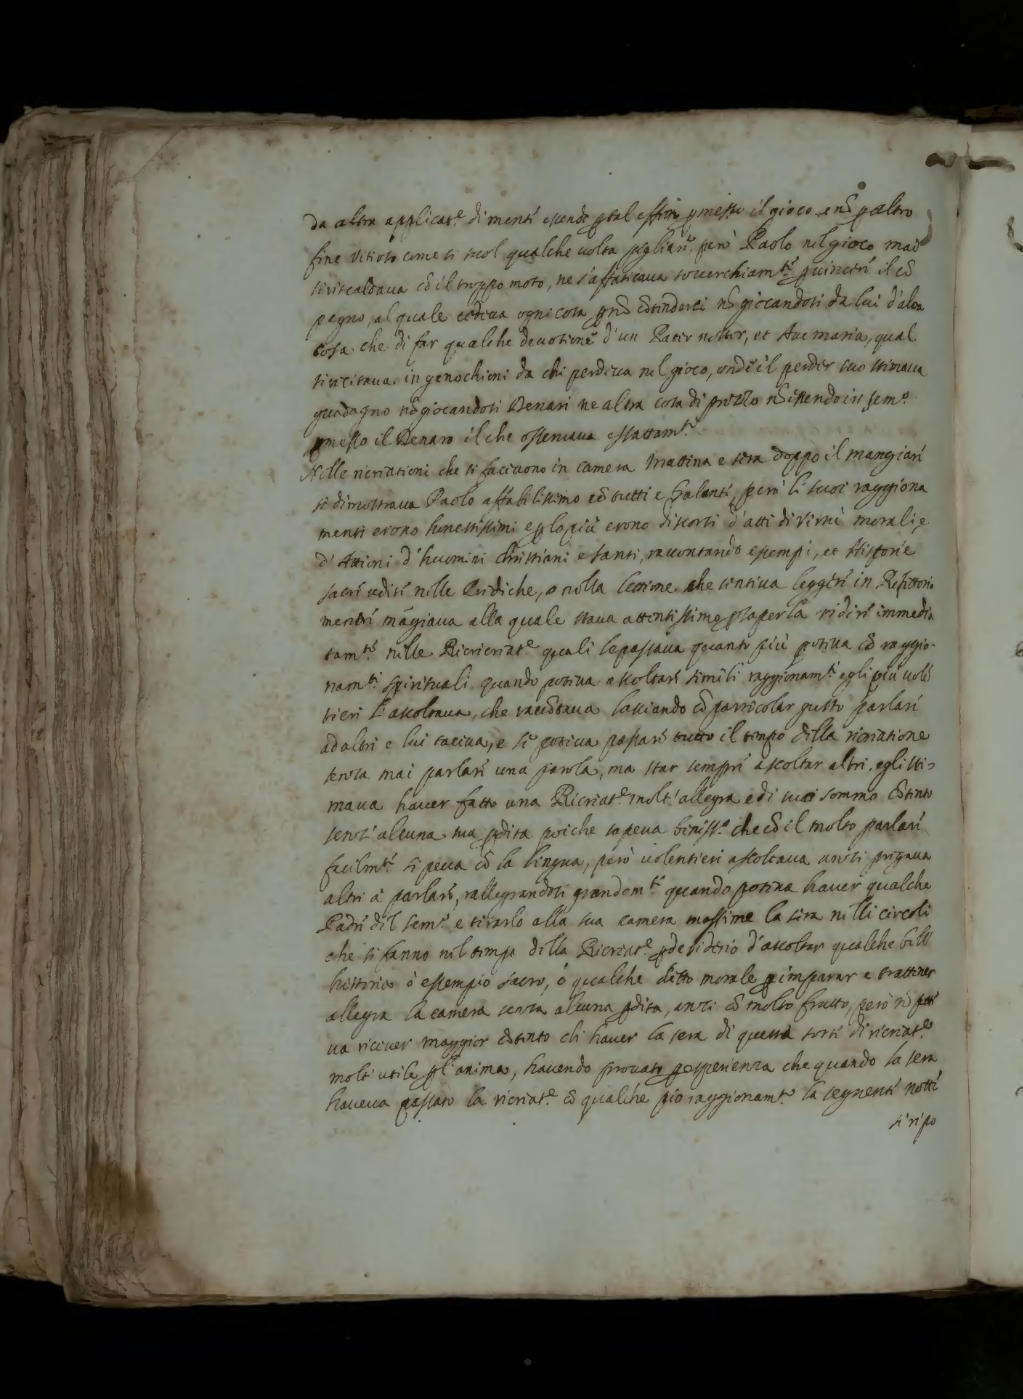 da altra applicat.e di mente essendo p tal effetto pmesso il gioco, e nõ p altro
fine vitioso come si suol qualche uolta pigliare, però Paolo nel gioco mai
si riscaldaua cõ il troppo moto, ne s'affaticaua souerchiam.te p uincere il cõ
pegno, al quale cedeua ogni cosa p nõ cõtendere nõ giocandosi da lui d'altra
cosa che di far qualche deuotione d'un Pater noster, et Aue maria, qual
si recitaua in genochioni da chi perdeua nel gioco, onde il perder suo stimaua
guadagno nõ giocandosi Denari ne altra cosa di prezzo nõ essendo in sem.o
pmesso il Denaro il che osseruaua essattam.te
Nelle ricreationi che si faceuono in camera mattina e sera doppo il mangiare
si dimostraua Paolo affabilissimo cõ tutti e Galante, però li suoi raggiona
menti erono honestissimi e p lo più erono discorsi d'atti di virtù morali, e
d'Attioni d'huomini christiani e santi, raccontando essempi, et Historie
sacre udite nelle Prediche, o nella lettione che sentiua leggere in Refettorio
mentre mãgiaua alla quale staua attentissimo p saperla ridire immedia
tam.te nelle Ricreat.e quali le passaua quanto più poteua cõ raggio-
nam.ti spirituali quando poteua ascoltare simili raggionam.ti egli più uolẽ
tieri l'ascoltaua, che raccõtaua lasciando cõ particolar gusto parlare
ad altri e lui taceua, e se poteua passare tutto il tempo della ricreatione
senza mai parlare una parola, ma star sempre ascoltar altri, egli sti-
maua hauer fatto una Ricreat.e molt'allegra e di suo sommo cõtento
senz'alcuna sua pdita poiche sapeua beniss.o che cõ il molto parlare
facilm.te si pecca cõ la lingua, però uolentieri ascoltaua anzi pregaua
altri à parlare, rallegrandosi grandem.te quando poteua hauer qualche
Padre del sem.o e tirarlo alla sua camera massime la sera nelli circoli
che si fanno nel tempo della Ricreat.e p desiderio d'ascoltar qualche bell
historia ò essempio sacro, ò qualche detto morale p imparar e trattener
allegra la camera senza alcuna pdita, anzi cõ molto frutto, però nõ pote
ua riceuer maggior cõtento che hauer la sera di queste sorte di ricreat.e
molt'utile p l'anima, hauendo prouato p esperienza che quando la sera
haueua passato la ricreat.e cõ qualche pio raggionam.to la seguente notte
si ripo